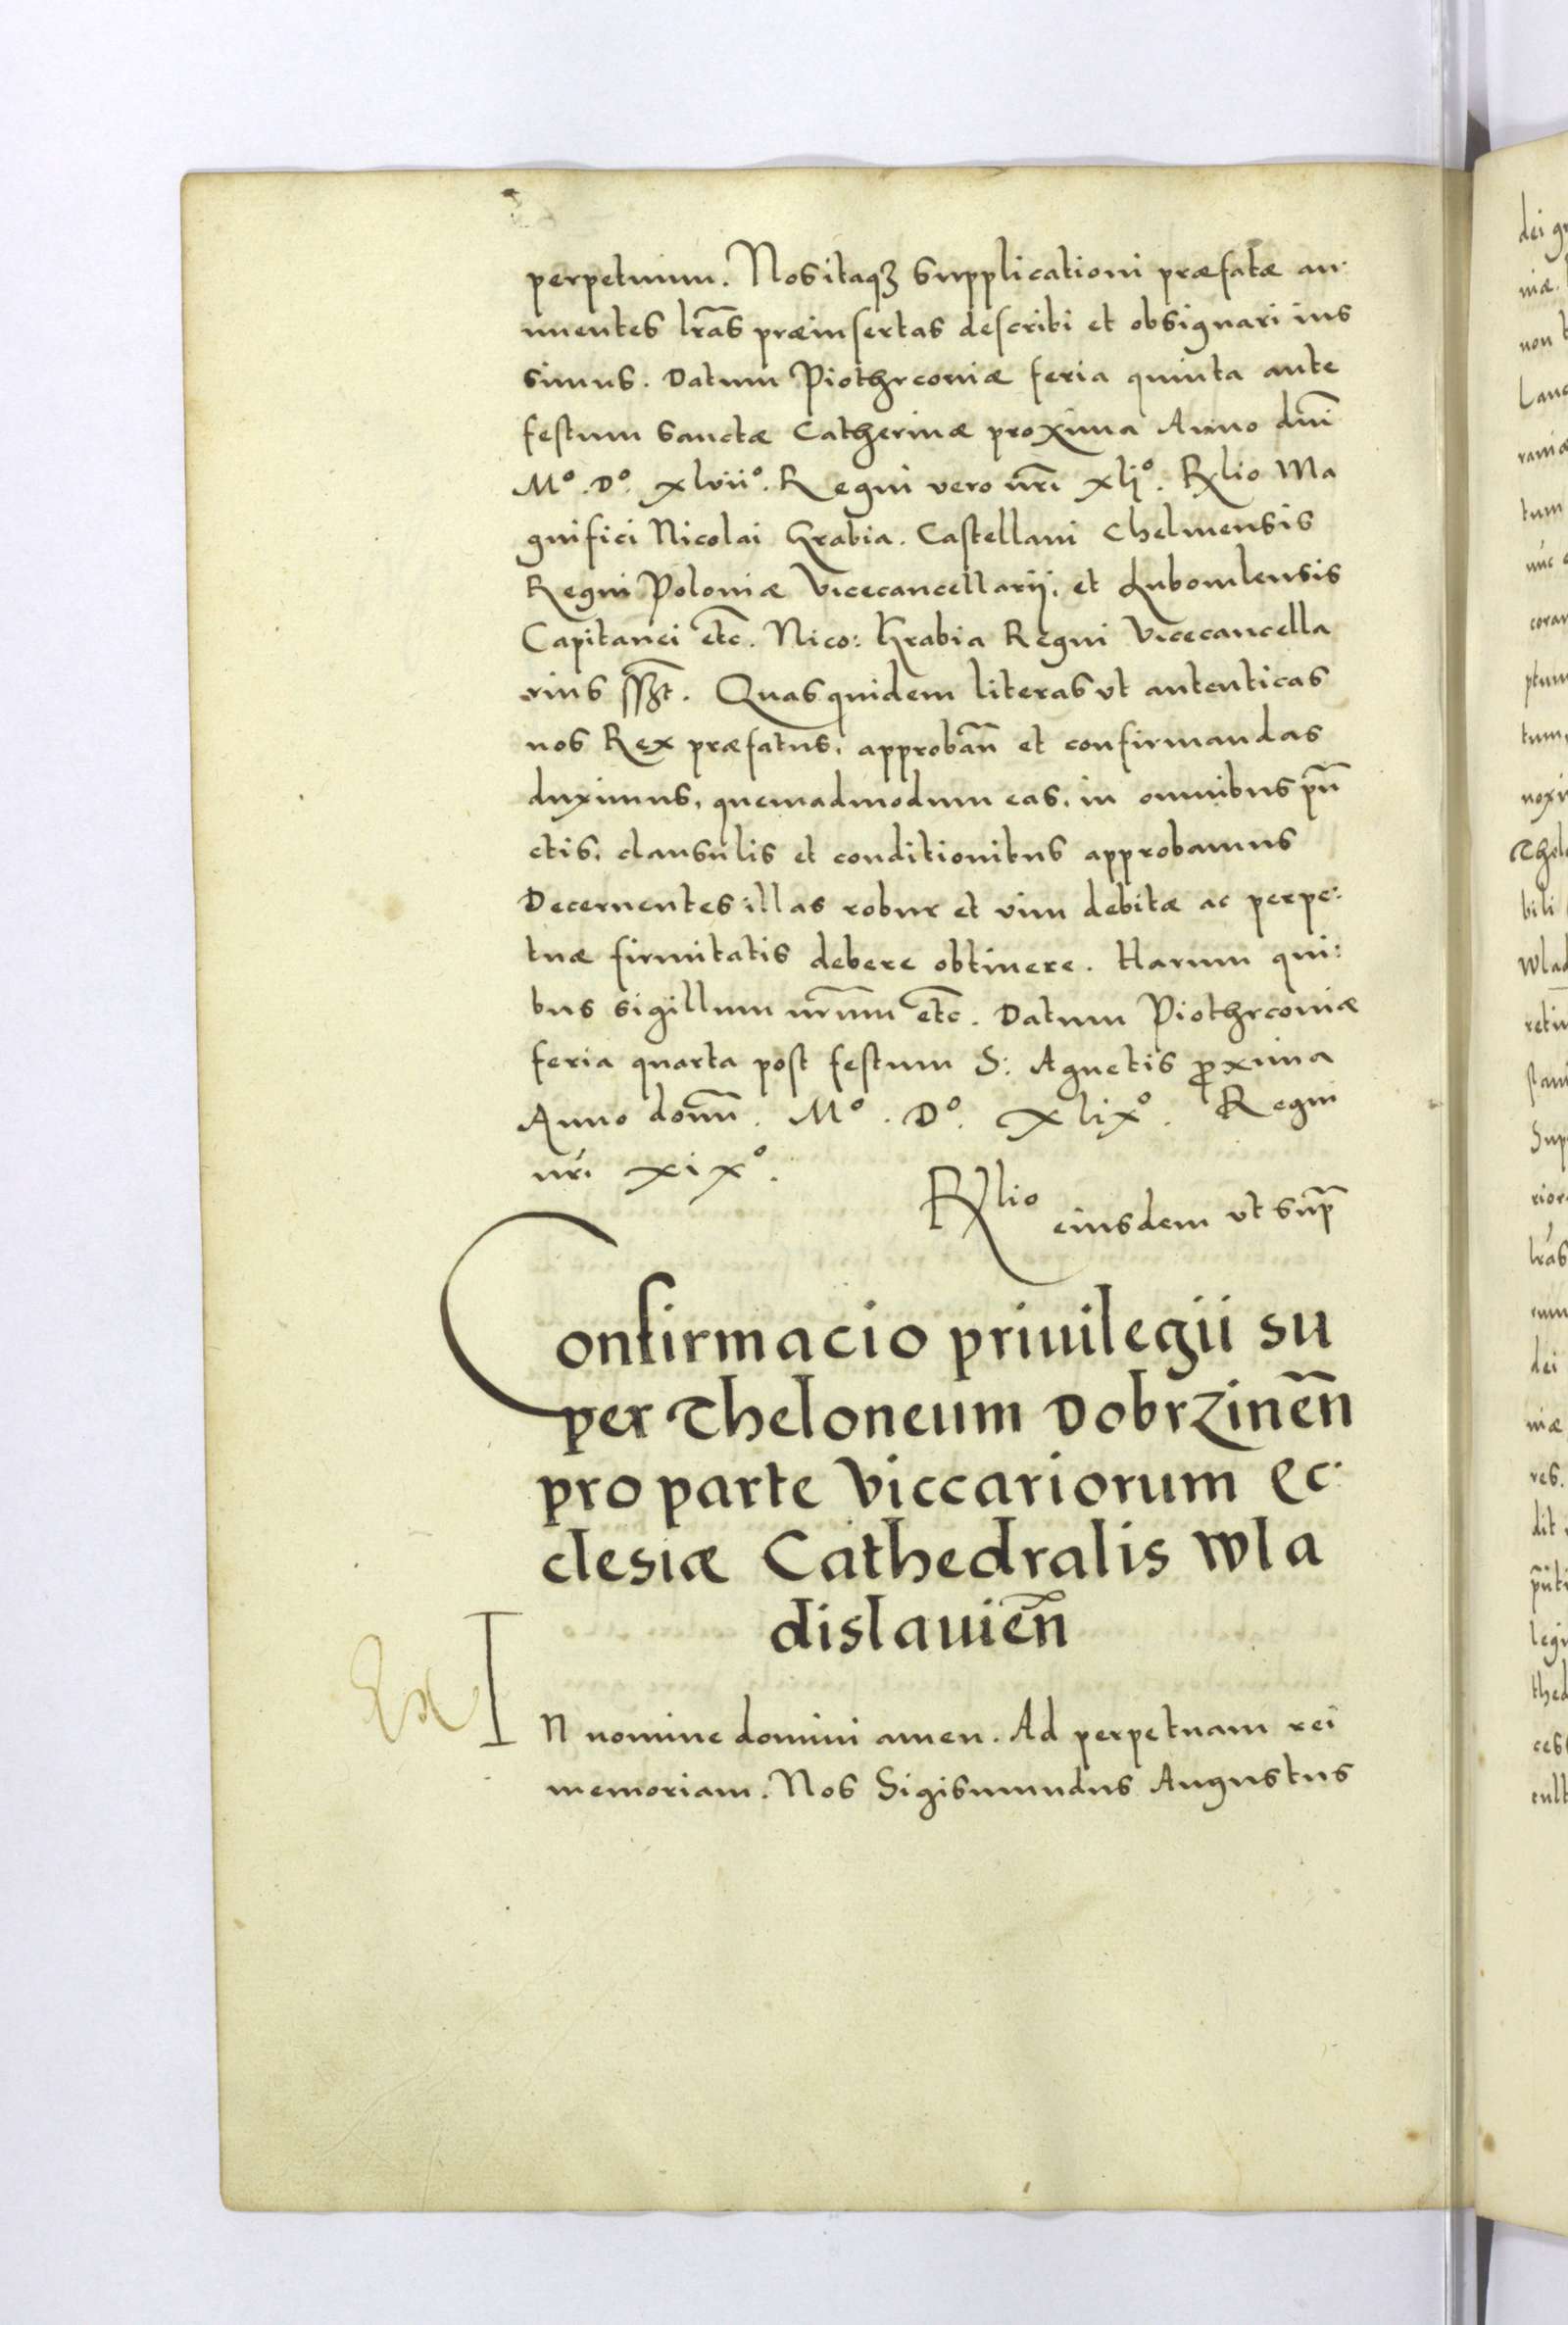 perpetuum. Nos itaqꝫ supplicationi præfatæ an:
nuentes lr̃as præinsertas describi et obsignari ius
simus. Datum Piothrcoviæ feria quinta ante
festum sanctæ Catherinæ proxima Anno dñi
Mº. Dº. xlviiº. Regni vero nr̃i xljº. Rẽlio Ma
gnifici Nicolai Grabia. Castellani Chelmensis
Regni Poloniæ Vicecancellarij. et Lubomlensis
Capitanei etc̃. Nico: Grabia Regni Vicecancella
rius sszt. Quas quidem literas vt autenticas
nos Rex præfatus, approbañ et confirmandas
duximus, quemadmodum eas, in omnibus pũ
ctis, clausulis et conditionibus approbamus
Decernentes illas robur et vim debitæ ac perpe:
tuæ firmitatis debere obtinere. Harum qui:
bus sigillum nr̃um etc̃. Datum Piothrcoviæ
feria quarta post festum S: Agnetis ꝓxima
Anno domĩ. Mº. Dº. xlixº. Regni
nr̃i xixº.
Rẽlio eiusdem vt supͣ
Confirmacio priuilegii su
per Theloneum Dobrzineñ
pro parte Viccariorum Ec:
clesiæ Cathedralis Wla
dislauieñ
Ex
IN nomine domini amen. Ad perpetuam rei
memoriam. Nos Sigismundus Augustus
dei
niæ.
non
Lanc
raniæ
tum
nũc
coram
ptum
tum,
noxi
Thel
bili
Wlad
retin
stani
Sup
rior
lr̃as
dei
niæ
res.
dit
legi
thed
ces
cult